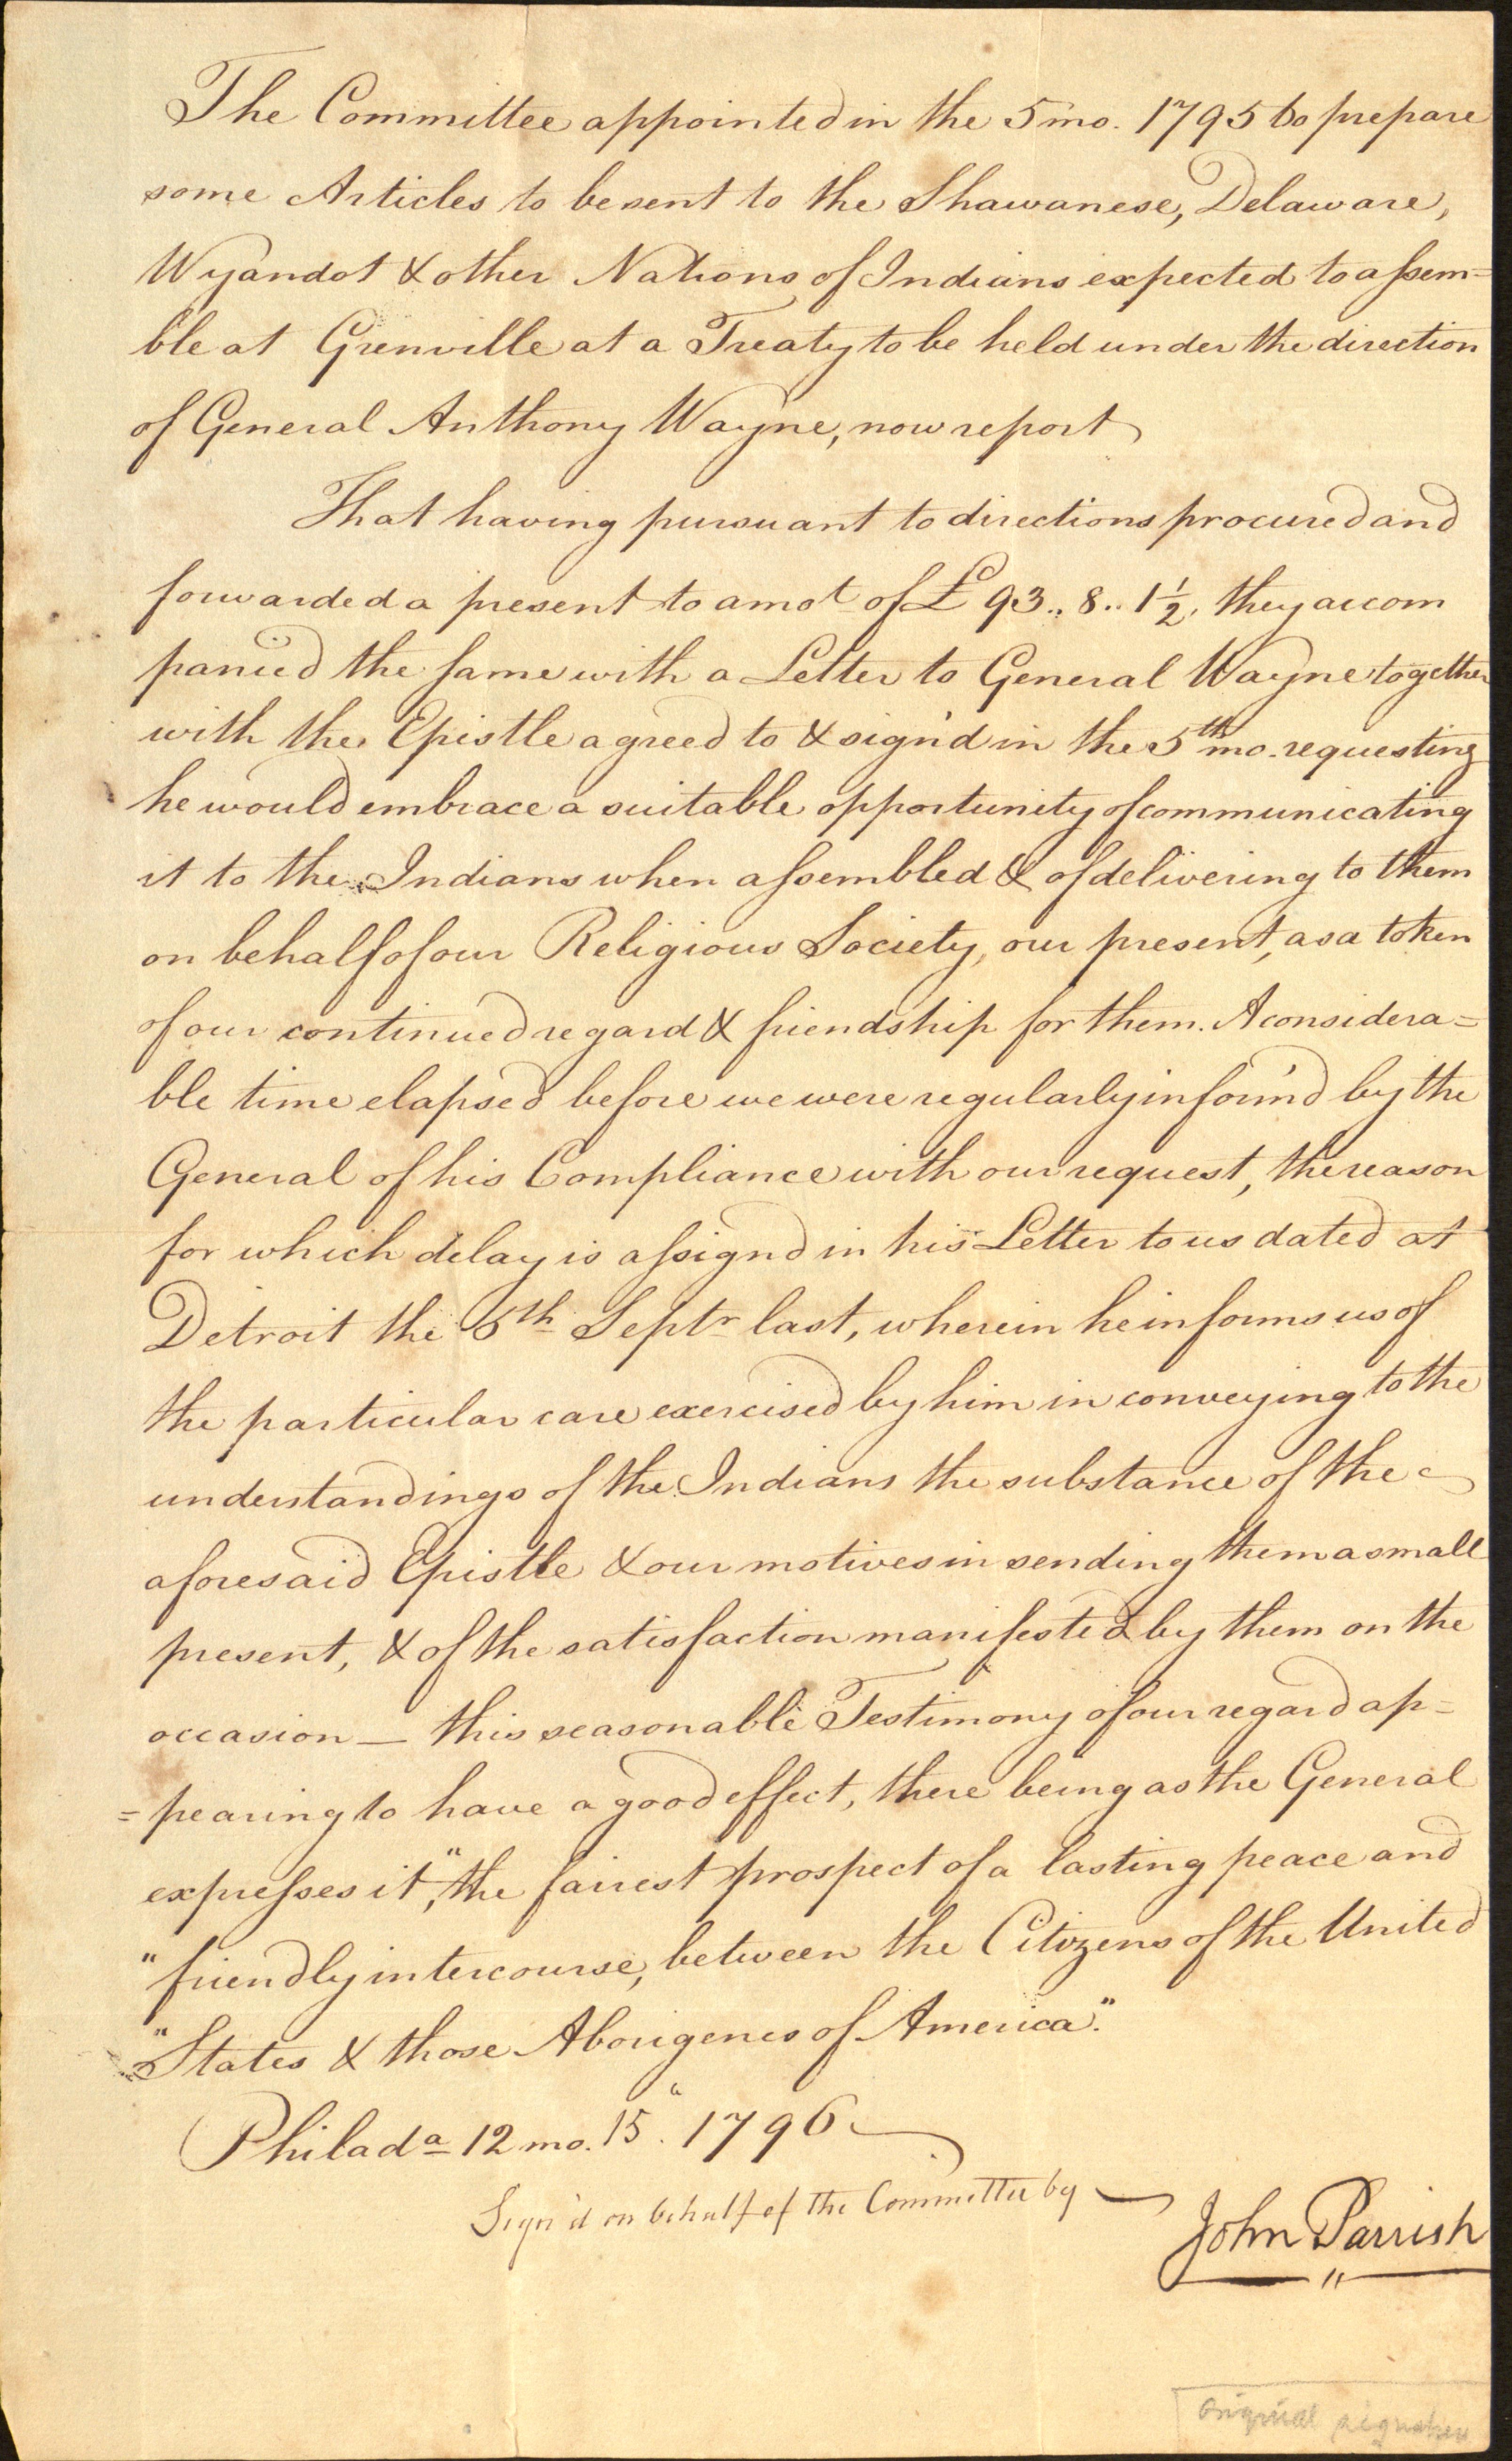 The Committee appointed in the 5 mo. 1795 to prepare
some Articles to be sent to the Shawanese, Delaware,
Wyandot & other Nations of Indians expected to assem=
ble at Grenville at a Treaty to be held under the direction
of General Anthony Wayne, now report
That having pursuant to directions procured and
forwarded a present to amot of £ 93..8..1½, they accom
panied the same with a Letter to General Wayne together
with the Epistle agreed to & sign'd in the 5th mo. requesting
he would embrace a suitable opportunity of communicating
it to the Indians when assembled & of delivering to them
on behalf of our Religious Society, our present, as a token
of our continued regard & friendship for them. A considera=
ble time elapsed before we were regularly inform'd by the
General of his Compliance with our request, the reason
for which delay is assign'd in his Letter to us dated at
Detroit the 6th Septr last, wherein he informs us of
the particular care exercised by him in conveying to the
understandings of the Indians the substance of the
aforesaid Epistle & our motives in sending them a small
present, & of the satisfaction manifested by them on the
occasion — this seasonable Testimony of our regard ap=
=pearing to have a good effect, there being as the General
expresses it, "the fairest prospect of a lasting peace and
"friendly intercourse, between the Citizens of the United
"States & those Aborigenes of America."
Philada 12 mo. 15" 1796
Sign'd on behalf of the Committee by
John Parrish
Original signature